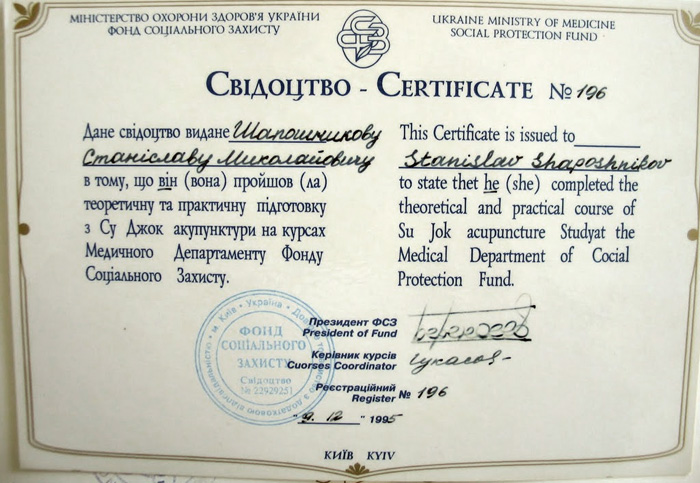 МІНІСТЕРСТВО ОХОРОНИ ЗДОРОВ'Я УКРАЇНИ
ФОНД СОЦІАЛЬНОГО ЗАХИСТУ
UKRAINE MINISTRY OF MEDICINE
SOCIAL PROTECTION FUND
СВІДОЦТВО - CERTIFICATE № 196
Дане свідоцтво видане Шапошникову
Станіславу Миколайовичу
в тому, що він (вона) пройшов (ла)
теоретичну та практичну підготовку
з Су Джок акупунктури на курсах
Медичного Департаменту Фонду
Соціального Захисту.
This Certificate is issued to
Stanislav Shaposhnikov
to state thet he (she) completed the
theoretical and practical course of
Su Jok acupuncture Studyat the
Medical Department of Cocial
Protection Fund.
м. Київ • Україна •
ФОНД
СОЦІАЛЬНОГО
ЗАХИСТУ
Свідоцтво
№ 22929251
Президент ФСЗ
President of Fund
Керівник курсів
Cuorses Coordinator
Реєстраційний
Register № 196
"9. 12 " 1995
КИЇВ KYIV